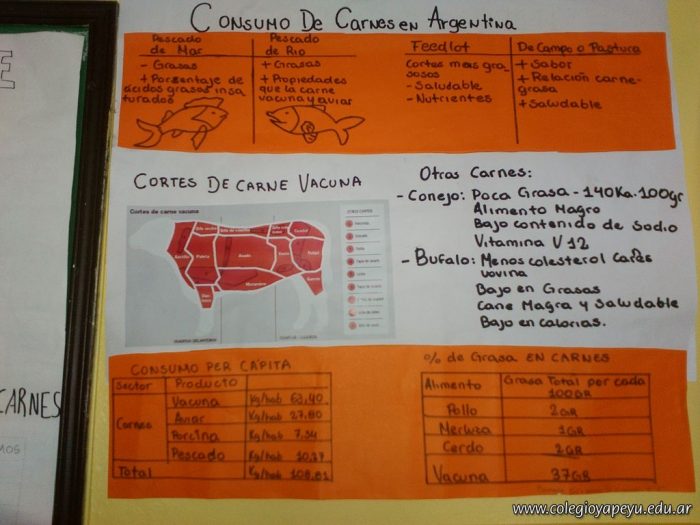 CONSUMO DE CARNES EN ARGENTINA
Pescado
de Mar
- Grasas
+ Porsentaje de
ácidos grasos insa
turados
Pescado
de Rio
+ Grasas
+ Propiedades
que la carne
vacuna y aviar
Feedlot
Cortes mas gra_
sosos
- Saludable
- Nutrientes
De Campo o Pastura
+ Sabor
+ Relación carne-
grasa
+ Saludable
CORTES DE CARNE VACUNA
Cortes de carne vacuna
Otras Carnes:
- Conejo: Poca Grasa - 140Ka.100gr
Alimento Magro
Bajo contenido de Sodio
Vitamina V 12
- Bufalo: Menos colesterol
vovina
Bajo en Grasas
Cane Magra y Saludable
Bajo en calorias.
CONSUMO PER CÁPITA
Sector Producto
Carnes
Vacuna Kg/hab
Aviar Kg/hab 27,80
Porcina Kg/hab 7,34
Pescado Kg/hab
Total Kg/hab
% de Grasa EN CARNES
Alimento Grasa Total por cada
100GR
Pollo 2GR
Merluza 1GR
Cerdo 2GR
Vacuna 37GR
CARNES
www.colegioyapeyu.edu.ar